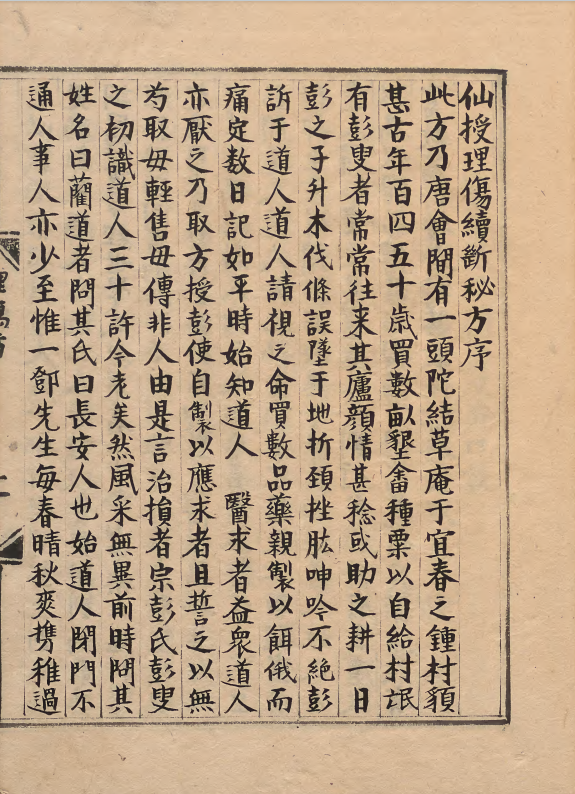 仙授理傷續斷秘方序
此方乃唐會間有一頭陀結草庵于宜春之鍾村貌
甚古年百四五十歲買數畝墾畬種粟以自給村氓
有彭叟者常常往来其廬顔情甚稔或助之耕一日
彭之子升木伐條誤墜于地折頚挫肱呻吟不絶彭
訴于道人道人請視之命買數品藥親製以餌俄而
痛定數日記如平時始知道人 醫求者益衆道人
亦厭之乃取方授彭使自製以應求者且誓之以無
芍取毋輕售毋傳非人由是言治損者宗彭氏彭叟
之初識道人三十許今老矣然風采無異前時問其
姓名曰藺道者問其氏曰長安人也始道人閉門不
通人事人亦少至惟一鄧先生每春晴秋爽携稚過